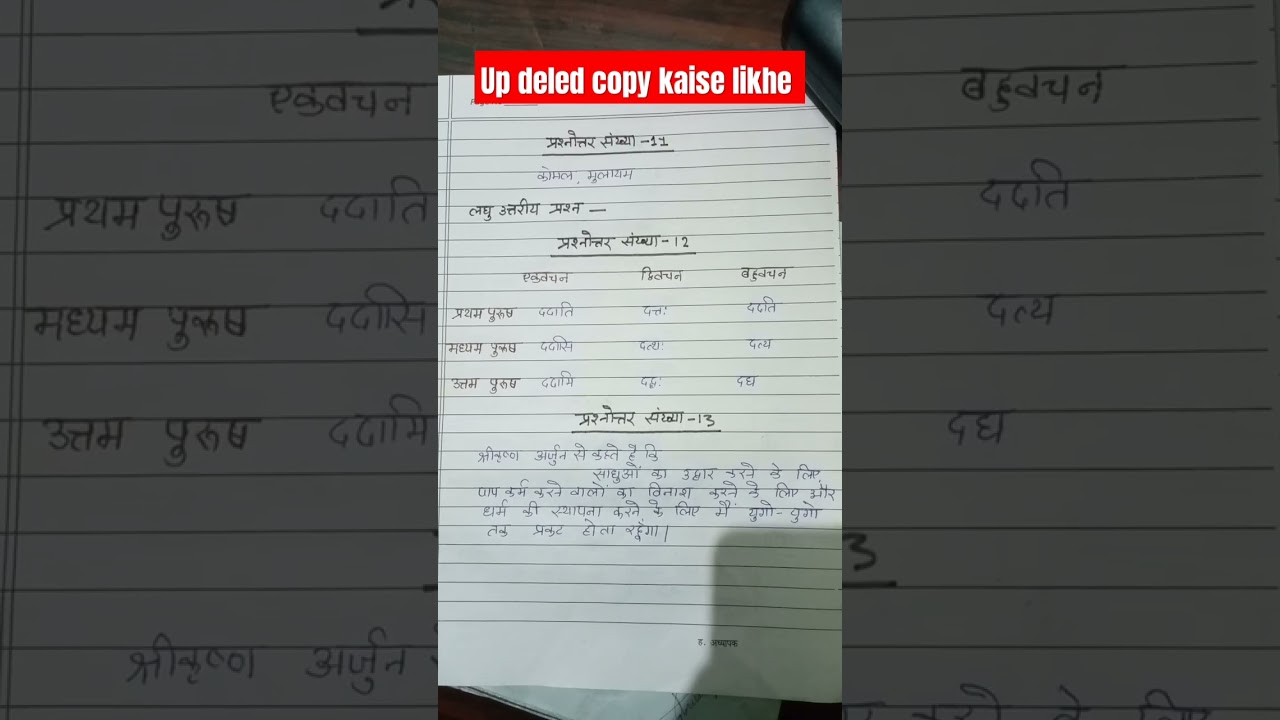 Up deled copy kaise likhe
प्रश्नोत्तर संख्या -11
कोमल, मुलायम
लघु उत्तरीय प्रश्न —
प्रश्नोत्तर संख्या -12
एकवचन द्विवचन बहुवचन
प्रथम पुरुष ददाति दत्तः ददति
मध्यम पुरुष ददासि दत्थः दत्थ
उत्तम पुरुष ददामि दद्वः दद्म
प्रश्नोत्तर संख्या -13
श्रीकृष्ण अर्जुन से कहते है कि
साधुओं का उद्धार करने के लिए,
पाप कर्म करने वालों का विनाश करने के लिए और
धर्म की स्थापना करने के लिए मैं युगो- युगो
तक प्रकट होता रहूँगा।
ह. अध्यापक